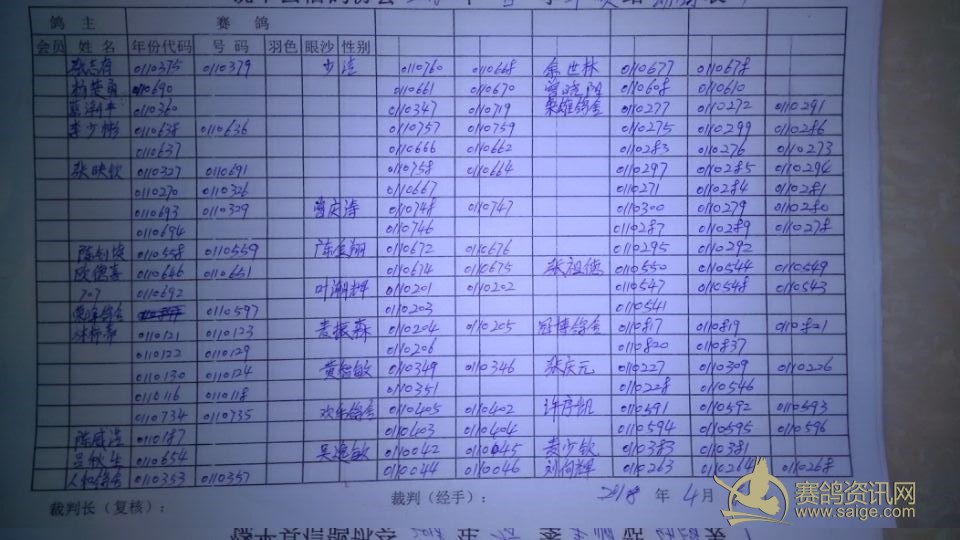 鸽主 赛鸽
会员 姓名 年份代码 号码 羽色 眼沙 性别
张志有 0110375 0110379 少法 0110760 0110668 余世林 0110677 0110678
杨楚勇 0110690 0110661 0110670 曾晓阳 0110608 0110610
0110360 0110347 0110719 荣雄鸽舍 0110277 0110272 0110291
李少彬 0110638 0110636 0110757 0110759 0110275 0110299 0110286
0110637 0110666 0110662 0110283 0110276 0110273
张映钦 0110327 0110691 0110758 0110664 0110297 0110285 0110294
0110270 0110326 0110667 0110271 0110284 0110281
0110693 0110329 曾庆涛 0110748 0110747 0110300 0110279 0110280
0110694 0110746 0110287 0110289 0110278
0110558 0110559 陈金翔 0110672 0110676 0110295 0110292
欧德喜 0110646 0110651 0110674 0110675 张祖德 0110550 0110544 0110549
707 0110692 叶潮辉 0110201 0110202 0110547 0110548 0110543
0110597 0110203 0110541
林标帝 0110121 0110123 麦振森 0110204 0110205 冠博鸽舍 0110817 0110819 0110821
0110122 0110129 0110206 0110820 0110837
0110130 0110124 黄智敏 0110349 0110346 张庆元 0110227 0110309 0110226
0110116 0110118 0110351 0110228 0110546
0110734 0110735 欢乐鸽舍 0110405 0110402 许序凯 0110591 0110592 0110593
陈盛浩 0110187 0110403 0110404 0110594 0110595 0110596
吕秋生 0110654 吴逸敏 0110042 0110045 黄少钦 0110383 0110381
人和鸽舍 0110353 0110357 0110044 0110046 刘向辉 0110263 0110264 0110268
裁判长（复核）： 裁判（经手）： 2018 年 4月
赛鸽资讯网
www.saige.com